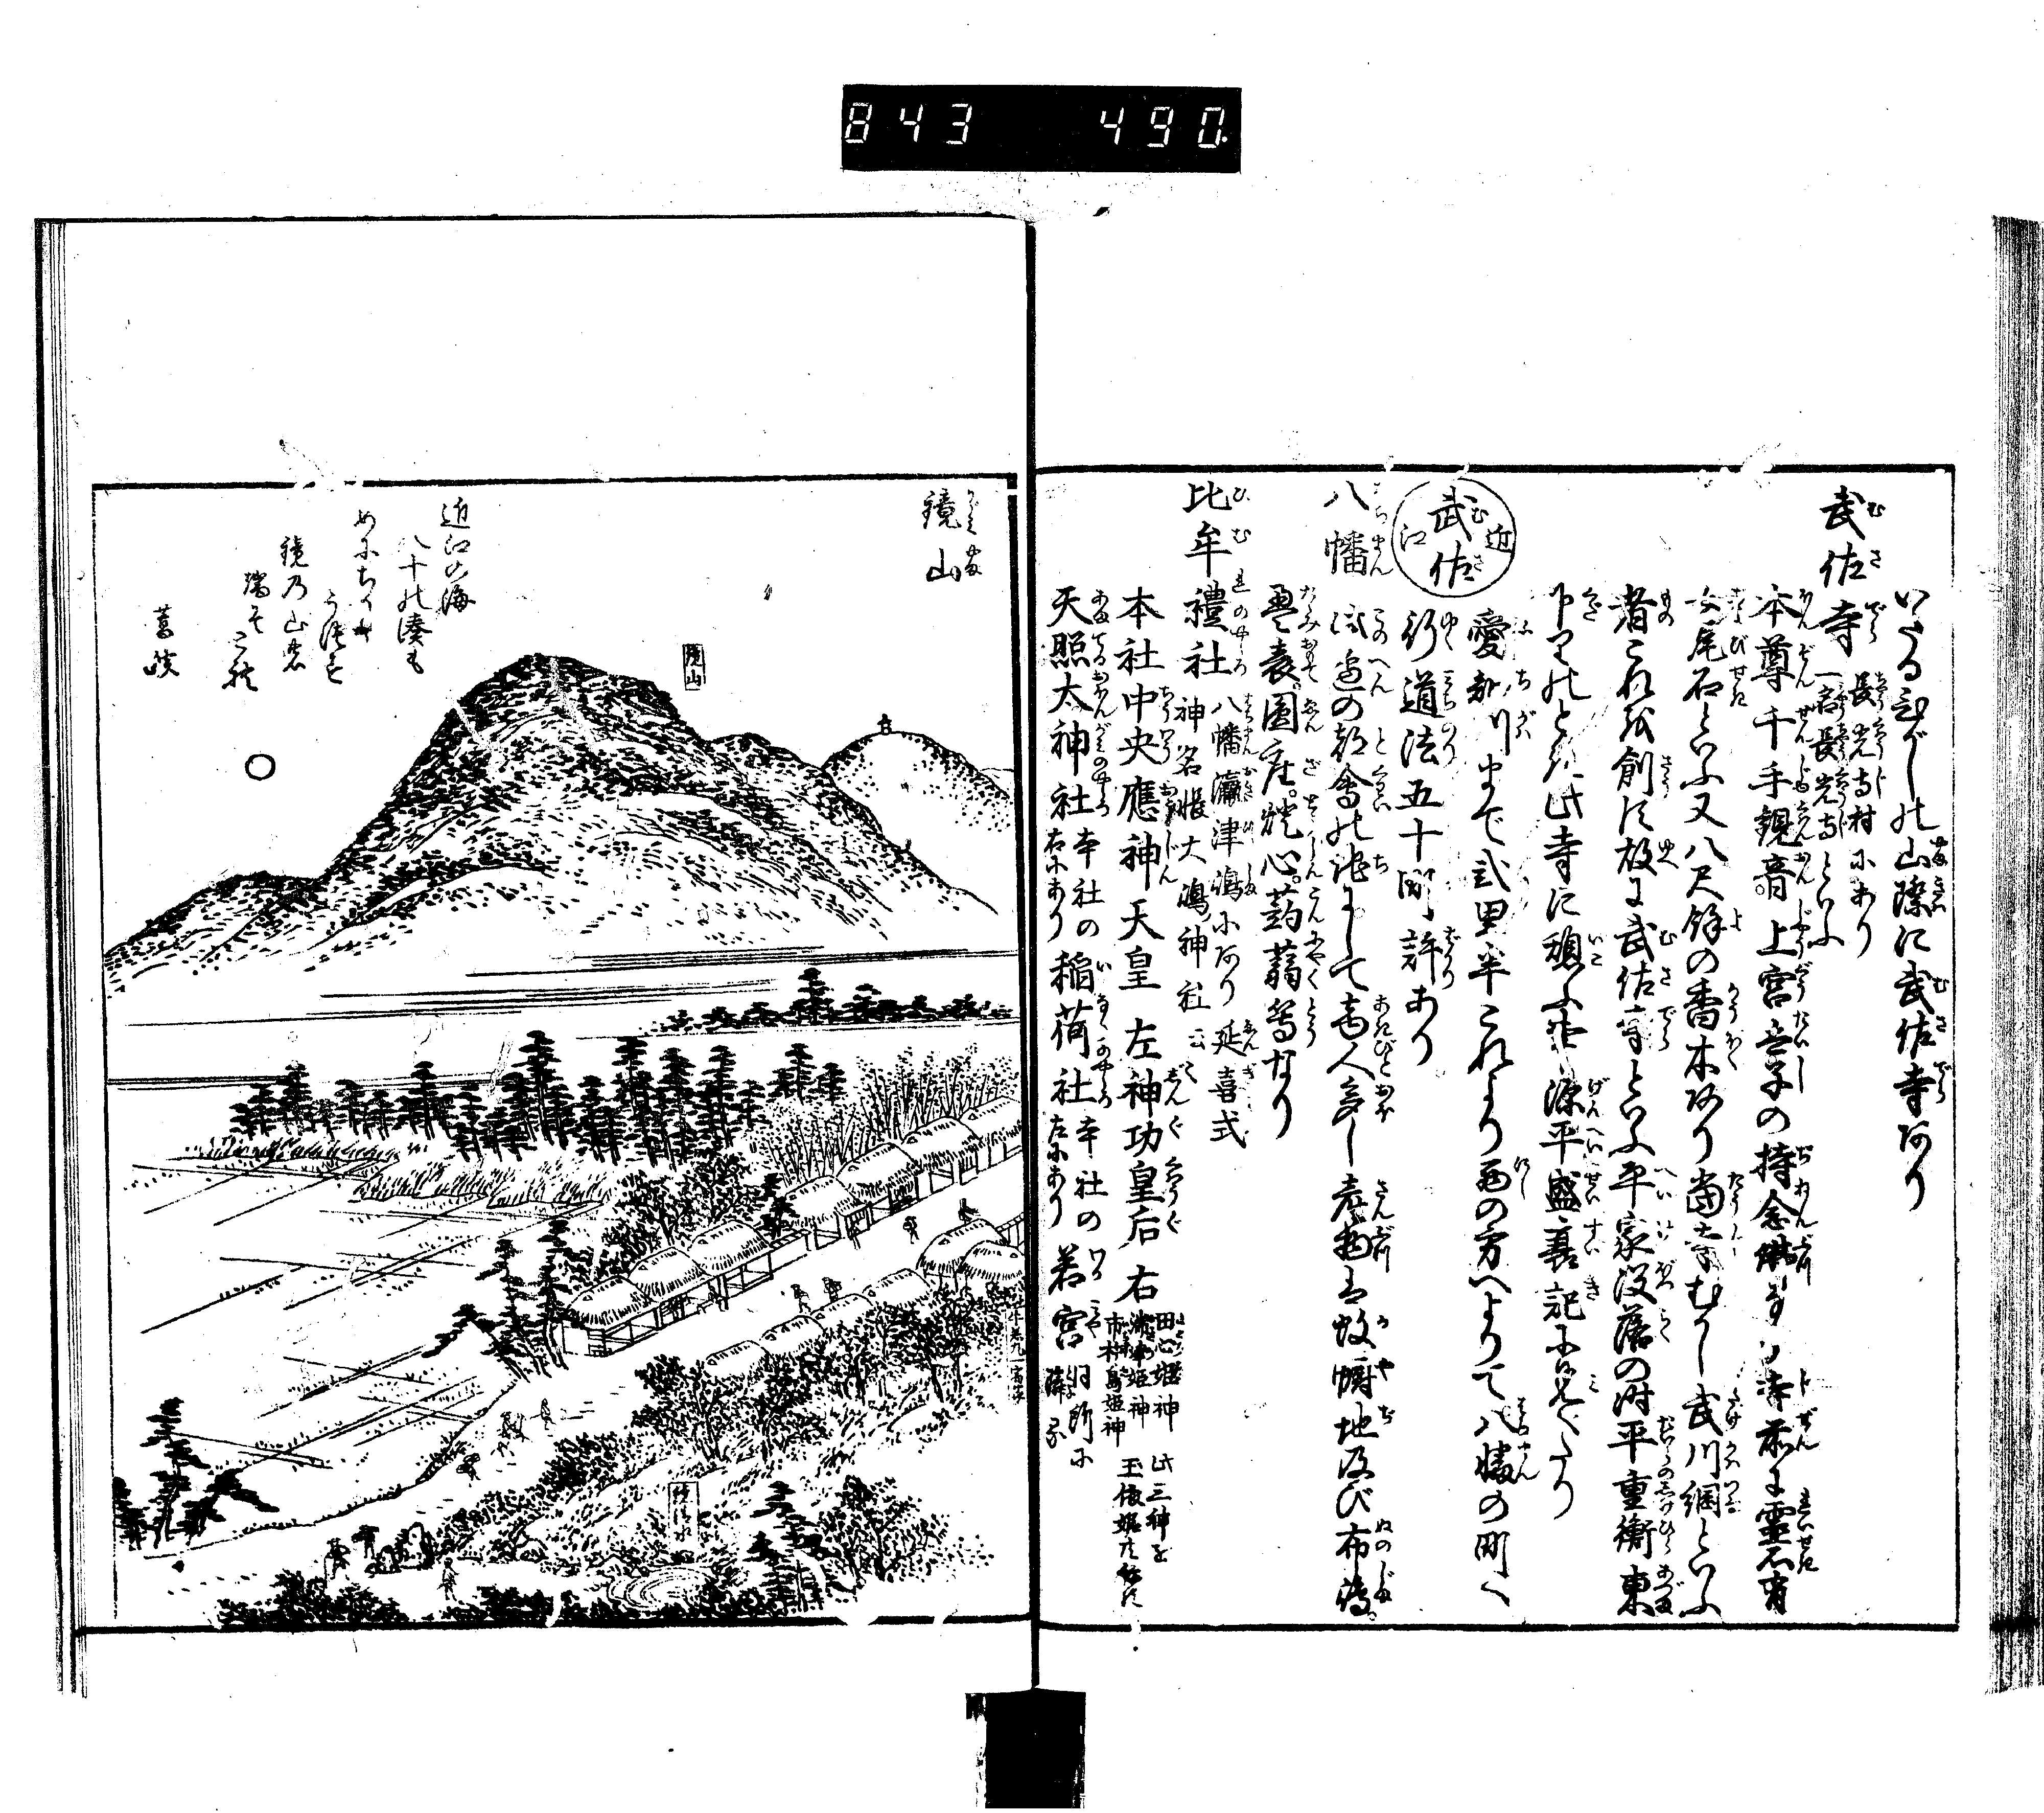 843 490
いたるひがしの山際に武佐寺あり
武佐寺
長光寺村にあり
一名長光寺といふ
本尊千手観音上宮太子の持念佛なり寺前に霊石有
尾石といふ又八尺餘の香木あり當寺むかし武川綱といふ
者これを創す故に武佐寺といふ平家没落の時平重衡東
下りのとき此寺に憩ふ由源平盛衰記に見へたり
近江
武佐
愛知川まで弐里半これより西の方へよりて八幡の町へ
行道法五十町許あり
八幡
此辺の都會の地にして商人多し産物は蚊帳地及び布。
畳表。圓座。燈心。蒟蒻等なり
比牟禮社
八幡瀛津嶋にあり延喜式
神名帳大嶋神社云云
本社中央應神天皇 左神功皇后 右
田心姫神
湍津姫神
市杵島姫神
此三神を
玉依姫
天照太神社
本社の
右にあり
稲荷社
本社の
左にあり
若宮
同所に
隣る
鏡山
近江の海
八十の湊も
めにちかく
うつす
鏡乃山の
端そこれ
葛峨
鏡山